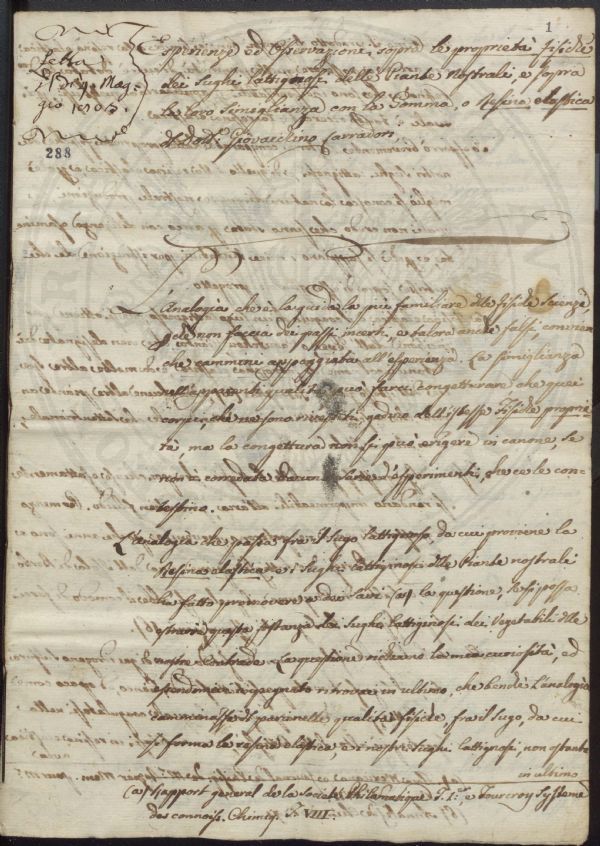 1
Letta
il Dì 9. Mag-
gio 1803.
288
Esperienze ed Osservazioni sopra le proprietà fisiche
dei Sughi lattiginosi delle Piante nostrali, e sopra
la loro Simiglianza con la Gomma, o Resina elastica
del Dott. Giovacchino Carradori.
L'Analogia che è la guida la più familiare delle fisiche Scienze,
che non faccia dei passi incerti, e talora anche falsi, convien
che cammini appoggiata all'esperienza. La simiglianza
nell'apparenti qualità può farci congetturare che quei
corpi che ne sono rivestiti godino dell'istesse Fisiche proprie-
tà ma la congettura non si può erigere in canone, se
non è corredata da una serie d'esperimenti, che ce lo con-
testino.
L'analogia che passa fra il Sugo lattiginoso, da cui proviene la
Resina elastica e i Sughi lattiginosi delle Piante nostrali
ha fatto promovere a dei savj (a) la questione, se si possa
estrarre questa sostanza dai Sughi lattiginosi dei Vegetabili delle
nostre Contrade. La questione richiamò la mia curiosità, ed
essendomici impegnato rinvenni in ultimo, che benchè l'analogia
camminasse del pari nelle qualità fisiche fra il Sugo, da cui
si forma la resina elastica, e i nostri Sughi lattiginosi, non ostante
in ultimo
(a) Rapport general de la Societé Philomatique T. I. e Fourcroy Systeme
des connoiss. Chimiq. T. VIII.